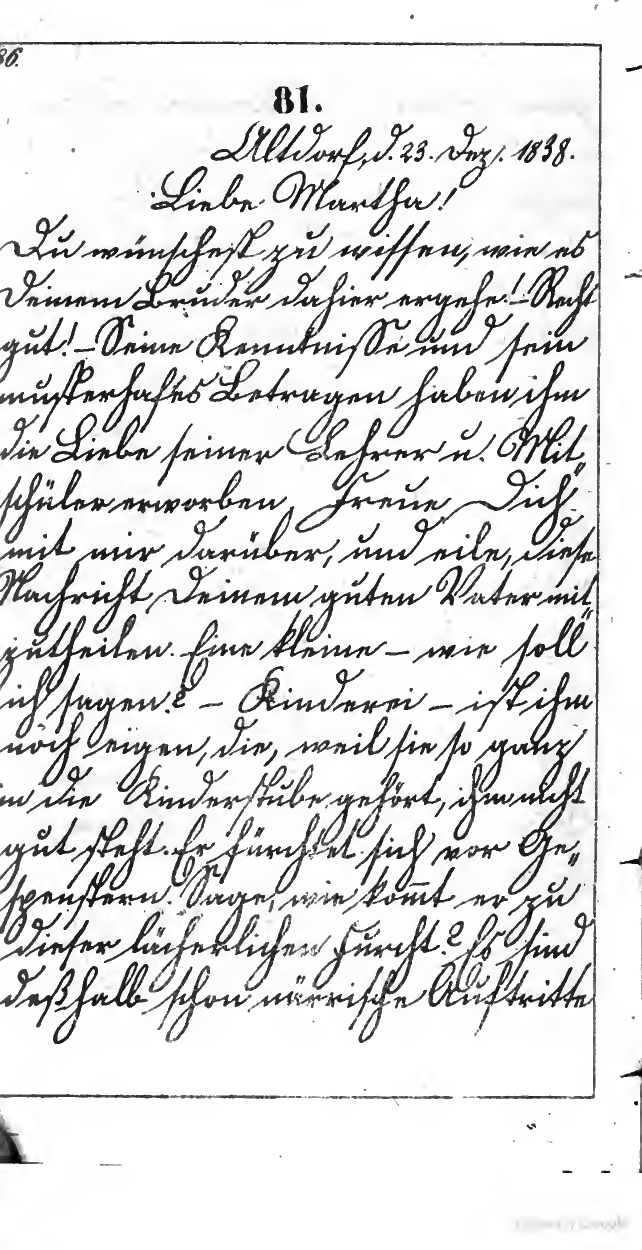 86.
81.
Altdorf, d. 23. Dez. 1838.
Liebe Martha!
Du wünschest zu wissen, wie es
Deinem Bruder dahier ergehe! – Recht
gut! – Seine Kenntnisse und sein
musterhaftes Betragen haben ihm
die Liebe seiner Lehrer u. Mit„
schüler erworben. Freue Dich
mit mir darüber, und eile, diese
Nachricht Deinem guten Vater mit„
zutheilen. Eine kleine – wie soll
ich sagen? – Kinderei – ist ihm
noch eigen, die, weil sie so ganz
in die Kinderstube gehört, ihm nicht
gut steht. Er fürchtet sich vor Ge„
spenstern. Sage, wie kom̅t er zu
dieser lächerlichen Furcht? Es sind
deßhalb schon närrische Auftritte